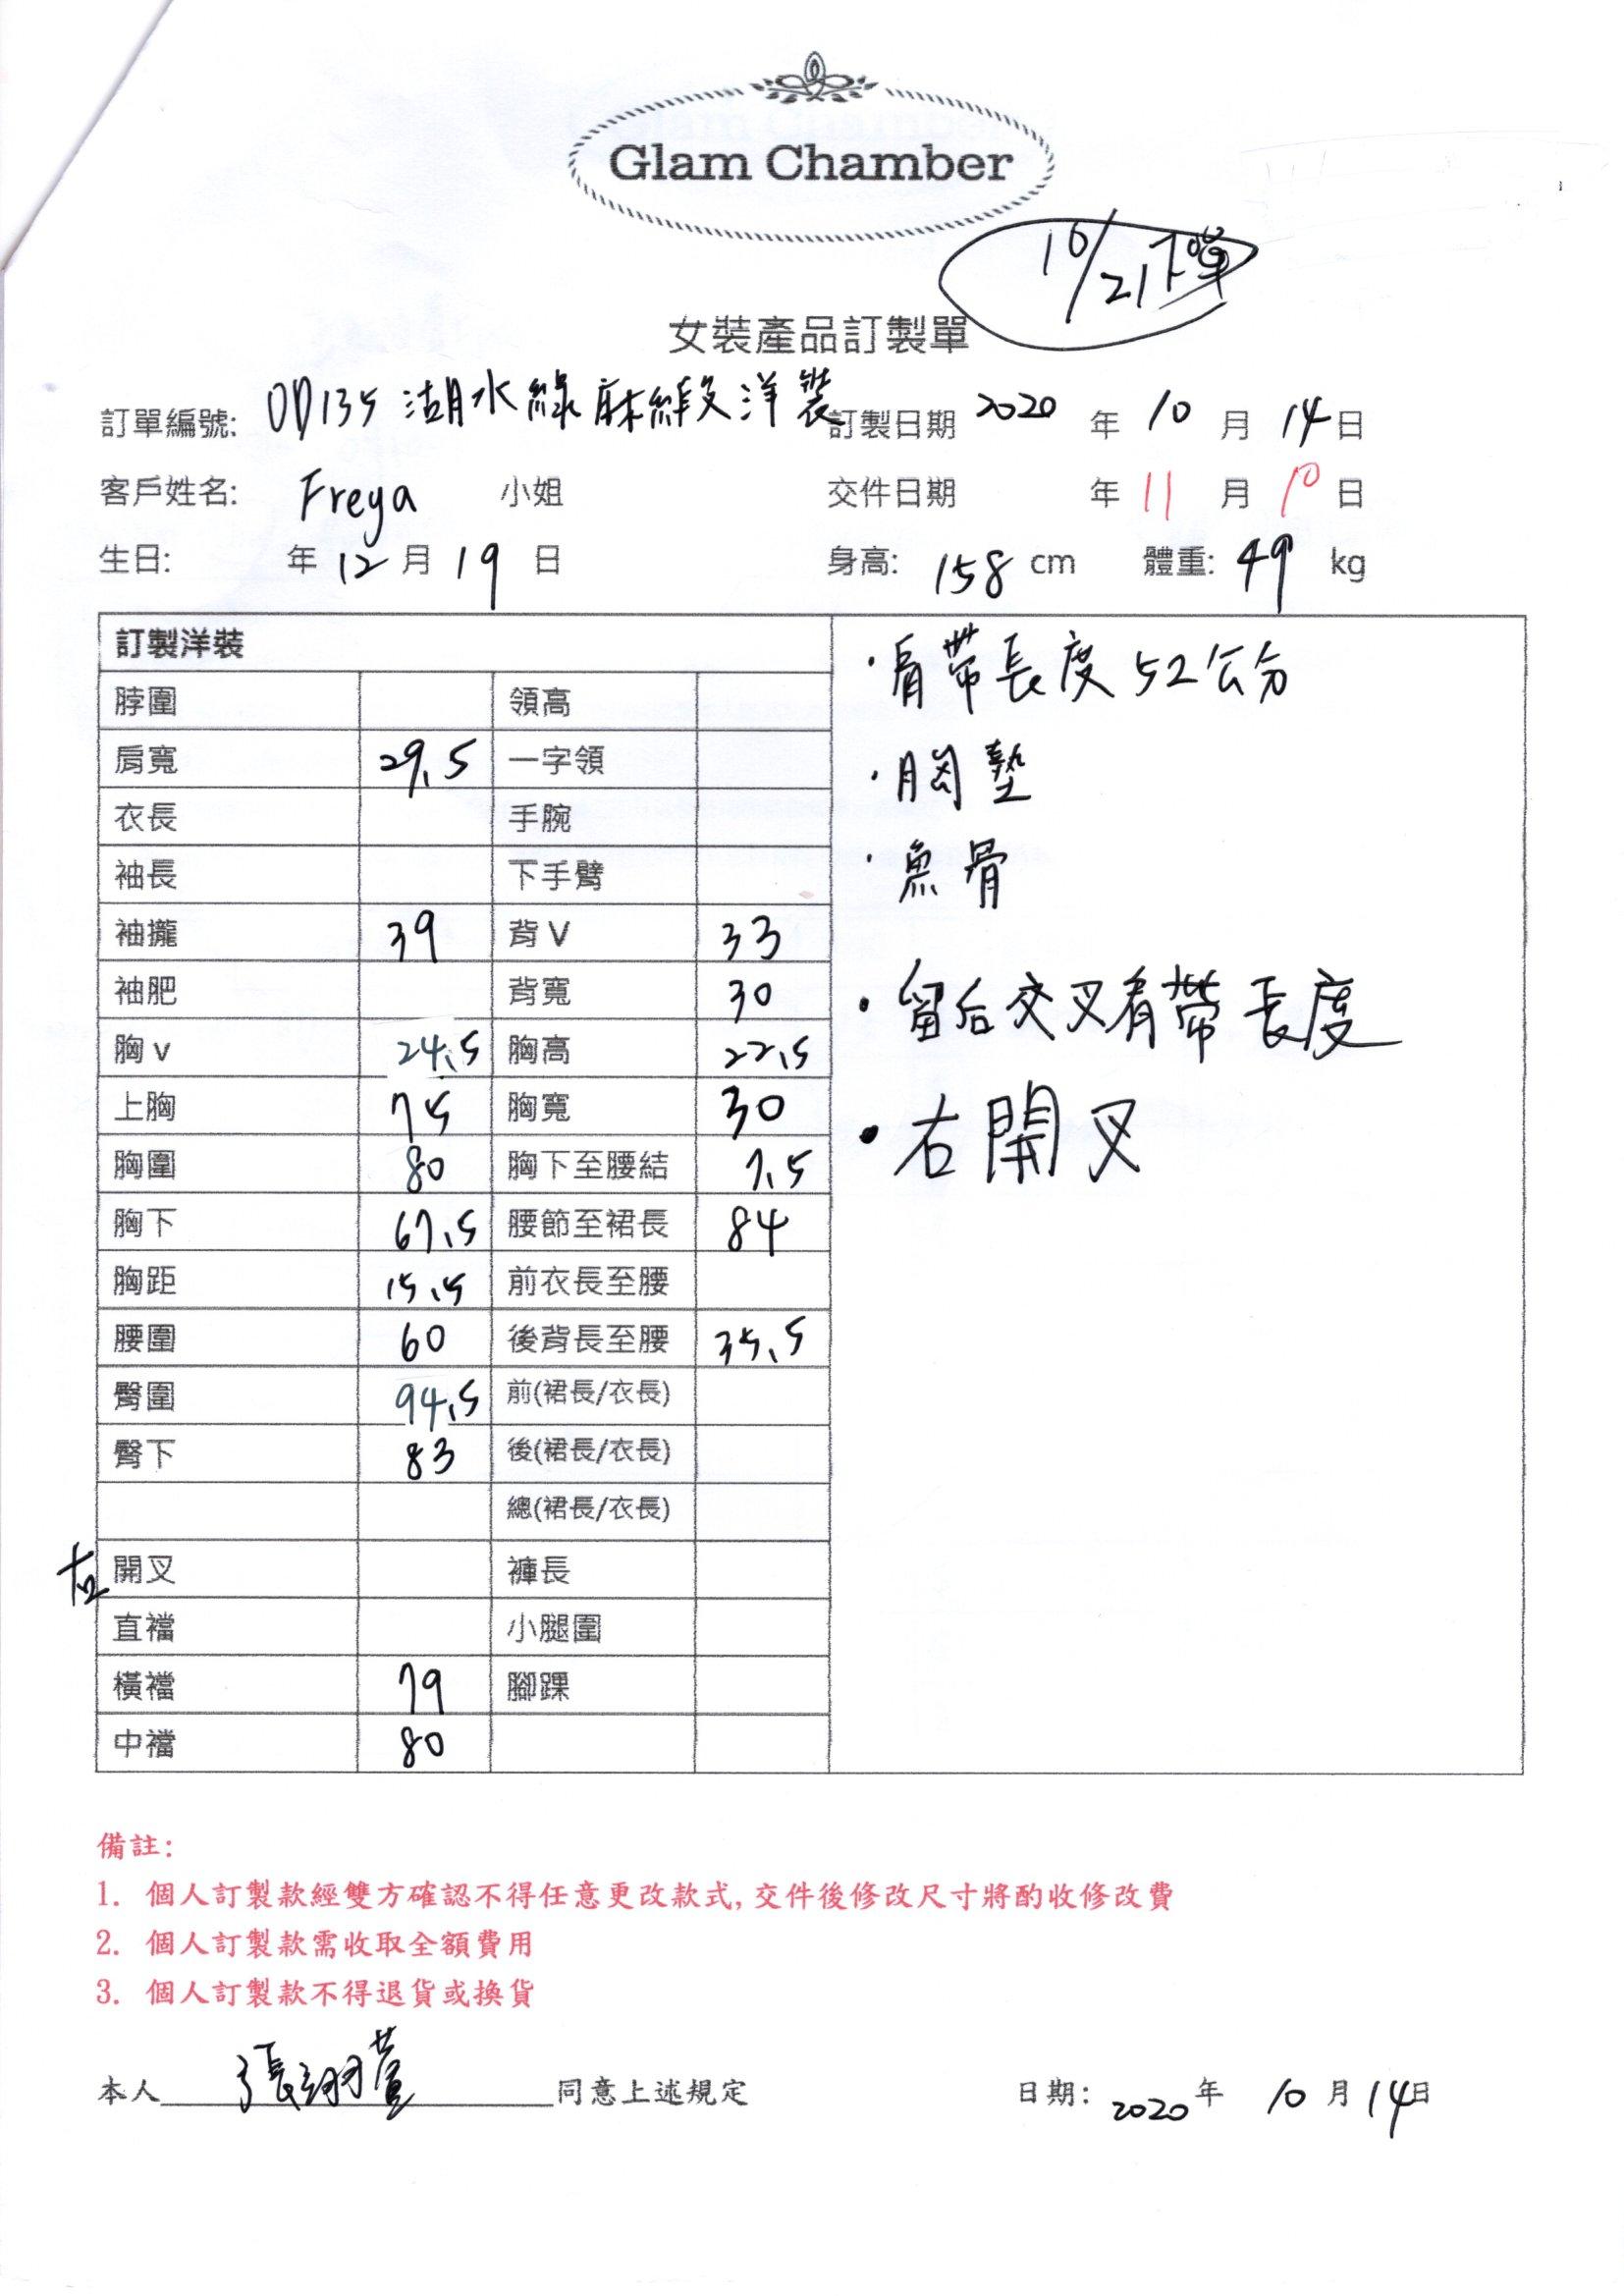 Glam Chamber
10/21下單
女裝產品訂製單
訂單編號: OD135 湖水綠麻緞洋裝 訂製日期 2020 年 10 月 14 日
客戶姓名: Freya 小姐 交件日期 年 11 月 10 日
生日: 年 12 月 19 日 身高: 158 cm 體重: 49 kg
訂製洋裝
脖圍 領高
肩寬 29.5 一字領
衣長 手腕
袖長 下手臂
袖攏 39 背 V 33
袖肥 背寬 30
胸 v 24.5 胸高 22.5
上胸 75 胸寬 30
胸圍 80 胸下至腰結 7.5
胸下 67.5 腰節至裙長 84
胸距 15.5 前衣長至腰
腰圍 60 後背長至腰 35.5
臀圍 94.5 前(裙長/衣長)
臀下 83 後(裙長/衣長)
總(裙長/衣長)
右 開叉 褲長
直襠 小腿圍
橫襠 79 腳踝
中襠 80
·肩帶長度 52公分
·胸墊
·魚骨
·留后交叉肩帶長度
·右開叉
備註:
1. 個人訂製款經雙方確認不得任意更改款式, 交件後修改尺寸將酌收修改費
2. 個人訂製款需收取全額費用
3. 個人訂製款不得退貨或換貨
本人 張翊萱 同意上述規定 日期: 2020 年 10 月 14 日